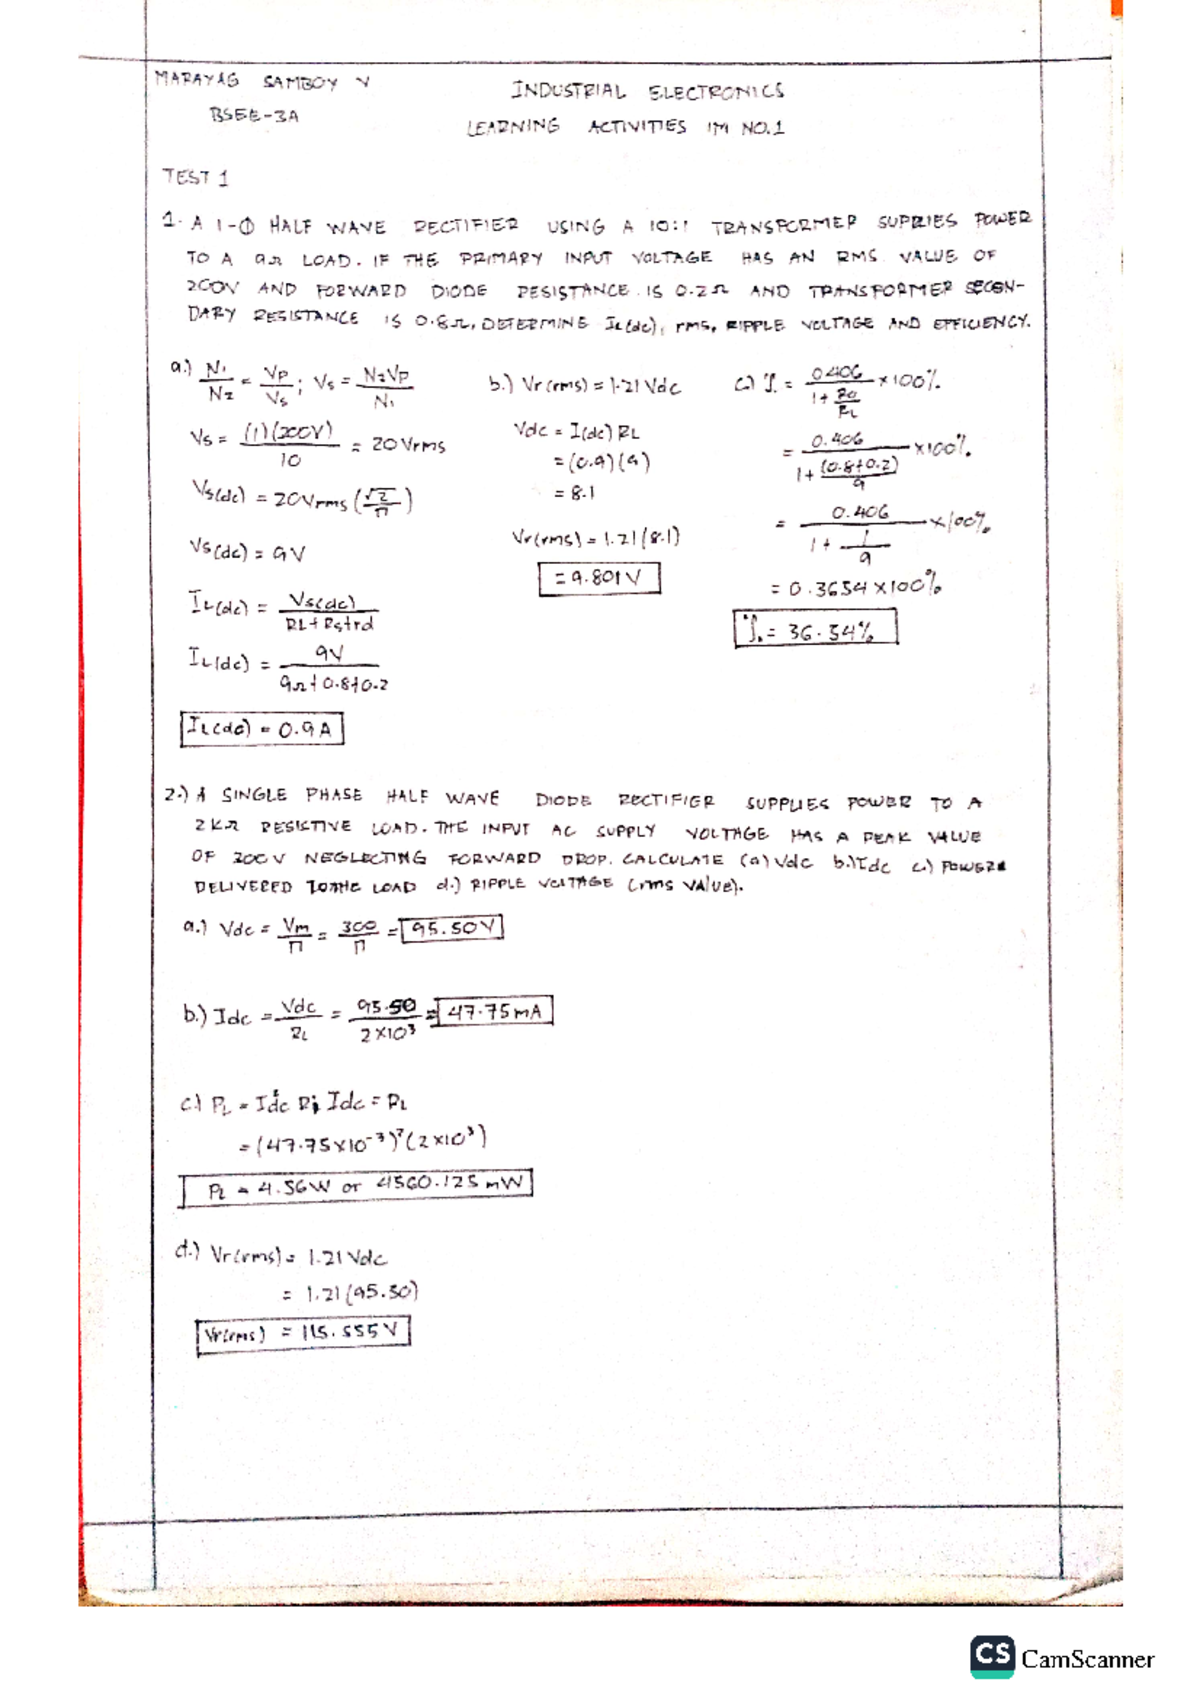 MARAYAG SAMBOY V
BSEE-3A
INDUSTRIAL ELECTRONICS
LEARNING ACTIVITIES IM NO.1
TEST 1
1. A 1-Φ HALF WAVE RECTIFIER USING A 10:1 TRANSFORMER SUPPLIES POWER
TO A 9Ω LOAD. IF THE PRIMARY INPUT VOLTAGE HAS AN RMS VALUE OF
200V AND FORWARD DIODE RESISTANCE IS 0.2Ω AND TRANSFORMER SECON-
DARY RESISTANCE IS 0.8Ω, DETERMINE IL(dc), rms, RIPPLE VOLTAGE AND EFFICIENCY.
a.) N1/N2 = Vp/Vs ; Vs = N2Vp/N1
Vs = (1)(200V)/10 = 20Vrms
Vs(dc) = 20Vrms (√2/π)
Vs(dc) = 9V
IL(dc) = Vs(dc)/RL+Rs+rd
IL(dc) = 9V/9Ω+0.8+0.2
IL(dc) = 0.9A
b.) Vr(rms) = 1.21 Vdc
Vdc = I(dc) RL
= (0.9)(9)
= 8.1
Vr(rms) = 1.21(8.1)
= 9.801V
c.) % = 0.406/1+Ro/RL ×100%
= 0.406/1+(0.8+0.2)/9 ×100%
= 0.406/1+1/9 ×100%
= 0.3654×100%
% = 36.54%
2.) A SINGLE PHASE HALF WAVE DIODE RECTIFIER SUPPLIES POWER TO A
2KΩ RESISTIVE LOAD. THE INPUT AC SUPPLY VOLTAGE HAS A PEAK VALUE
OF 300V NEGLECTING FORWARD DROP. CALCULATE (a) Vdc b.) Idc c.) POWER
DELIVERED TO THE LOAD d.) RIPPLE VOLTAGE (rms VALUE).
a.) Vdc = Vm/π = 300/π = 95.50V
b.) Idc = Vdc/RL = 95.50/2×10³ = 47.75mA
c.) PL = Idc² R; Idc = PL
= (47.75×10⁻³)²(2×10³)
PL = 4.56W or 4560.125mW
d.) Vr(rms) = 1.21 Vdc
= 1.21(95.50)
Vr(rms) = 115.555V
CS CamScanner